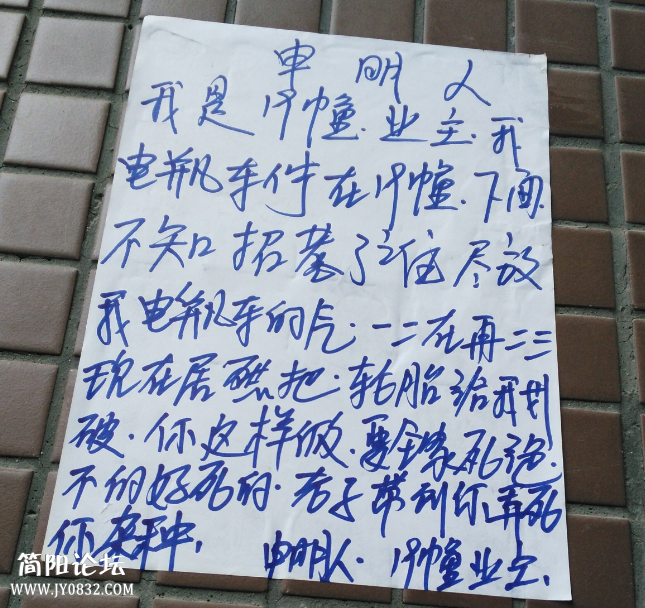 申明人
我是19幢.业主.我
电瓶车停在19幢.下面.
不知招惹了谁尽放
我电瓶车的气.一二在再二三
现在居然把.轮胎给我划
破.你这样做.要全家死绝.
不的好死的.老子带到你弄死
你杂种,
申明人.19幢业主.
简阳论坛
WWW.JY0832.COM